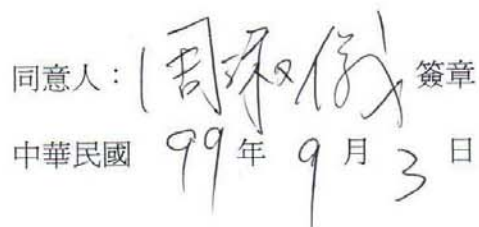 同意人：周淑儀 簽章
中華民國 99 年 9 月 3 日